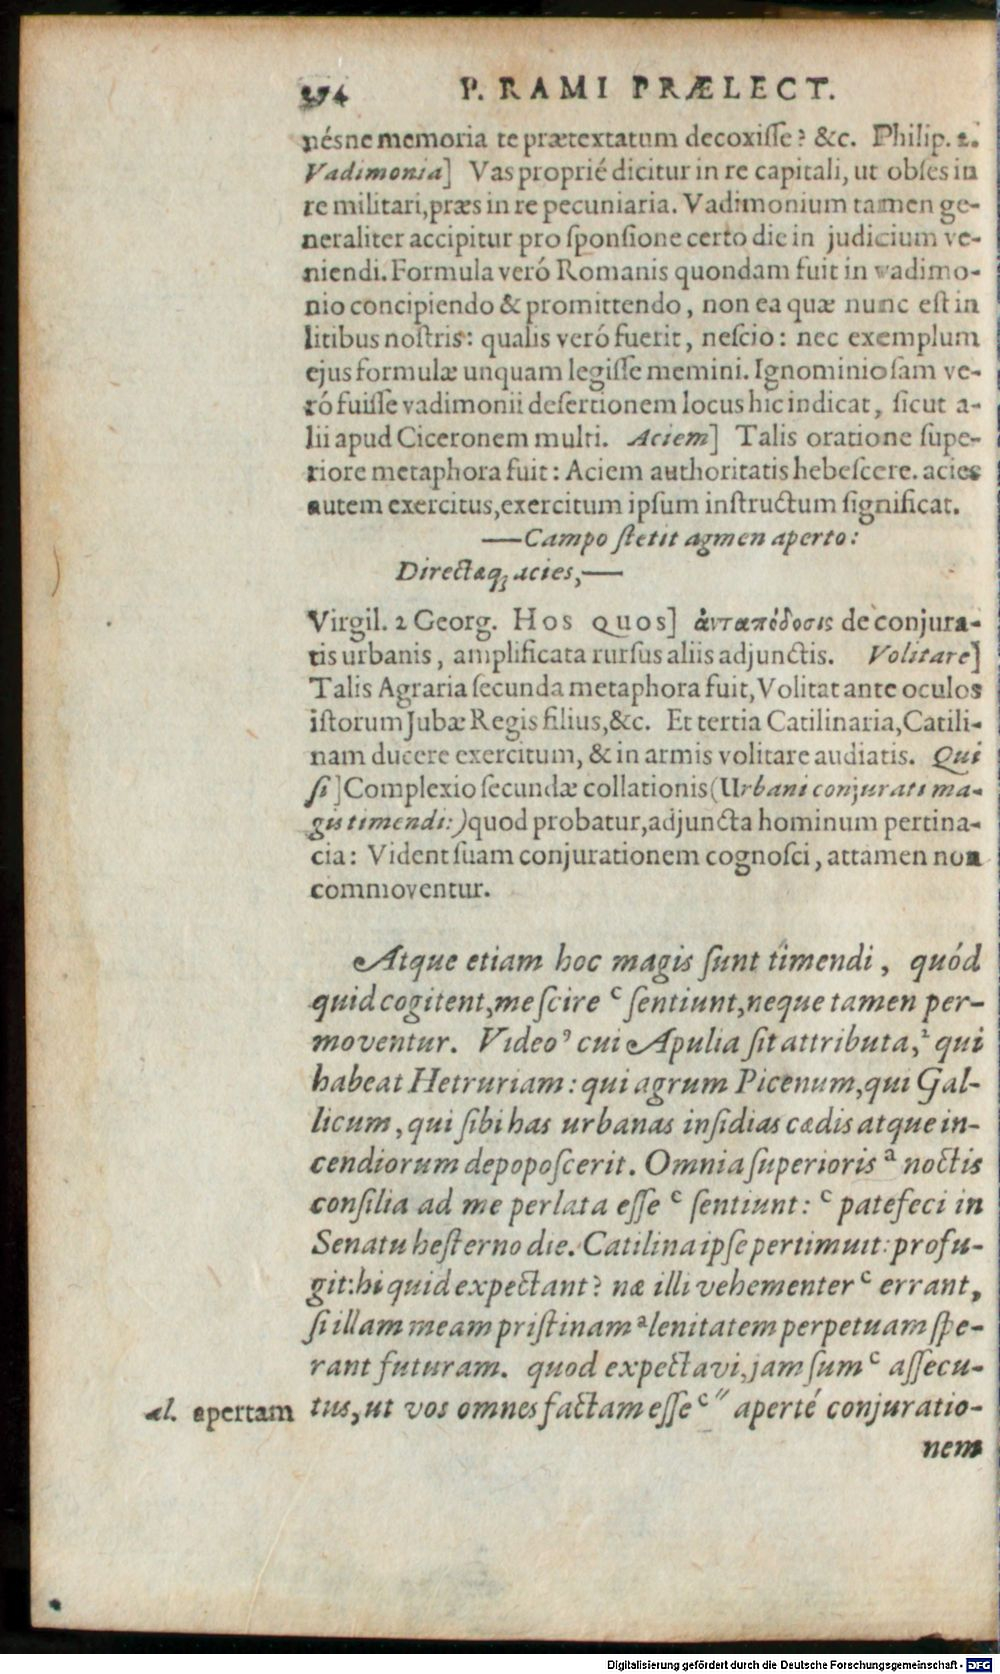 274 P. RAMI PRÆLECT.
nésne memoria te prætextatum decoxiſſe? &c. Philip. 2.
Vadimonia] Vas proprié dicitur in re capitali, ut obſes in
re militari, præs in re pecuniaria. Vadimonium tamen ge-
neraliter accipitur pro ſponſione certo die in judicium ve-
niendi. Formula veró Romanis quondam fuit in vadimo-
nio concipiendo & promittendo, non ea quæ nunc eſt in
litibus noſtris: qualis veró fuerit, neſcio: nec exemplum
ejus formulæ unquam legiſſe memini. Ignominioſam ve-
ró fuiſſe vadimonii deſertionem locus hic indicat, ſicut a-
lii apud Ciceronem multi. Aciem] Talis oratione ſupe-
riore metaphora fuit: Aciem authoritatis hebeſcere. acies
autem exercitus, exercitum ipſum inſtructum ſignificat.
—Campo ſtetit agmen aperto:
Directæq; acies,—
Virgil. 2 Georg. Hos quos] ἀνταπόδοσις de conjura-
tis urbanis, amplificata rurſus aliis adjunctis. Volitare]
Talis Agraria ſecunda metaphora fuit, Volitat ante oculos
iſtorum Jubæ Regis filius, &c. Et tertia Catilinaria, Catili-
nam ducere exercitum, & in armis volitare audiatis. Qui
ſi] Complexio ſecundæ collationis (Urbani conjurati ma-
gis timendi:) quod probatur, adjuncta hominum pertina-
cia: Vident ſuam conjurationem cognoſci, attamen non
commoventur.
Atque etiam hoc magis ſunt timendi, quód
quid cogitent, me ſcire c ſentiunt, neque tamen per-
moventur. Video ɔ cui Apulia ſit attributa, 2 qui
habeat Hetruriam: qui agrum Picenum, qui Gal-
licum, qui ſibi has urbanas inſidias cædis atque in-
cendiorum depopoſcerit. Omnia ſuperioris a noctis
conſilia ad me perlata eſſe c ſentiunt: c patefeci in
Senatu heſterno die. Catilina ipſe pertimuit: profu-
git: hi quid expectant? næ illi vehementer c errant,
ſi illam meam priſtinam a lenitatem perpetuam ſpe-
rant futuram. quod expectavi, jam ſum c aſſecu-
al. apertam tus, ut vos omnes factam eſſe c" aperté conjuratio-
nem
Digitalisierung gefördert durch die Deutsche Forschungsgemeinschaft - DFG